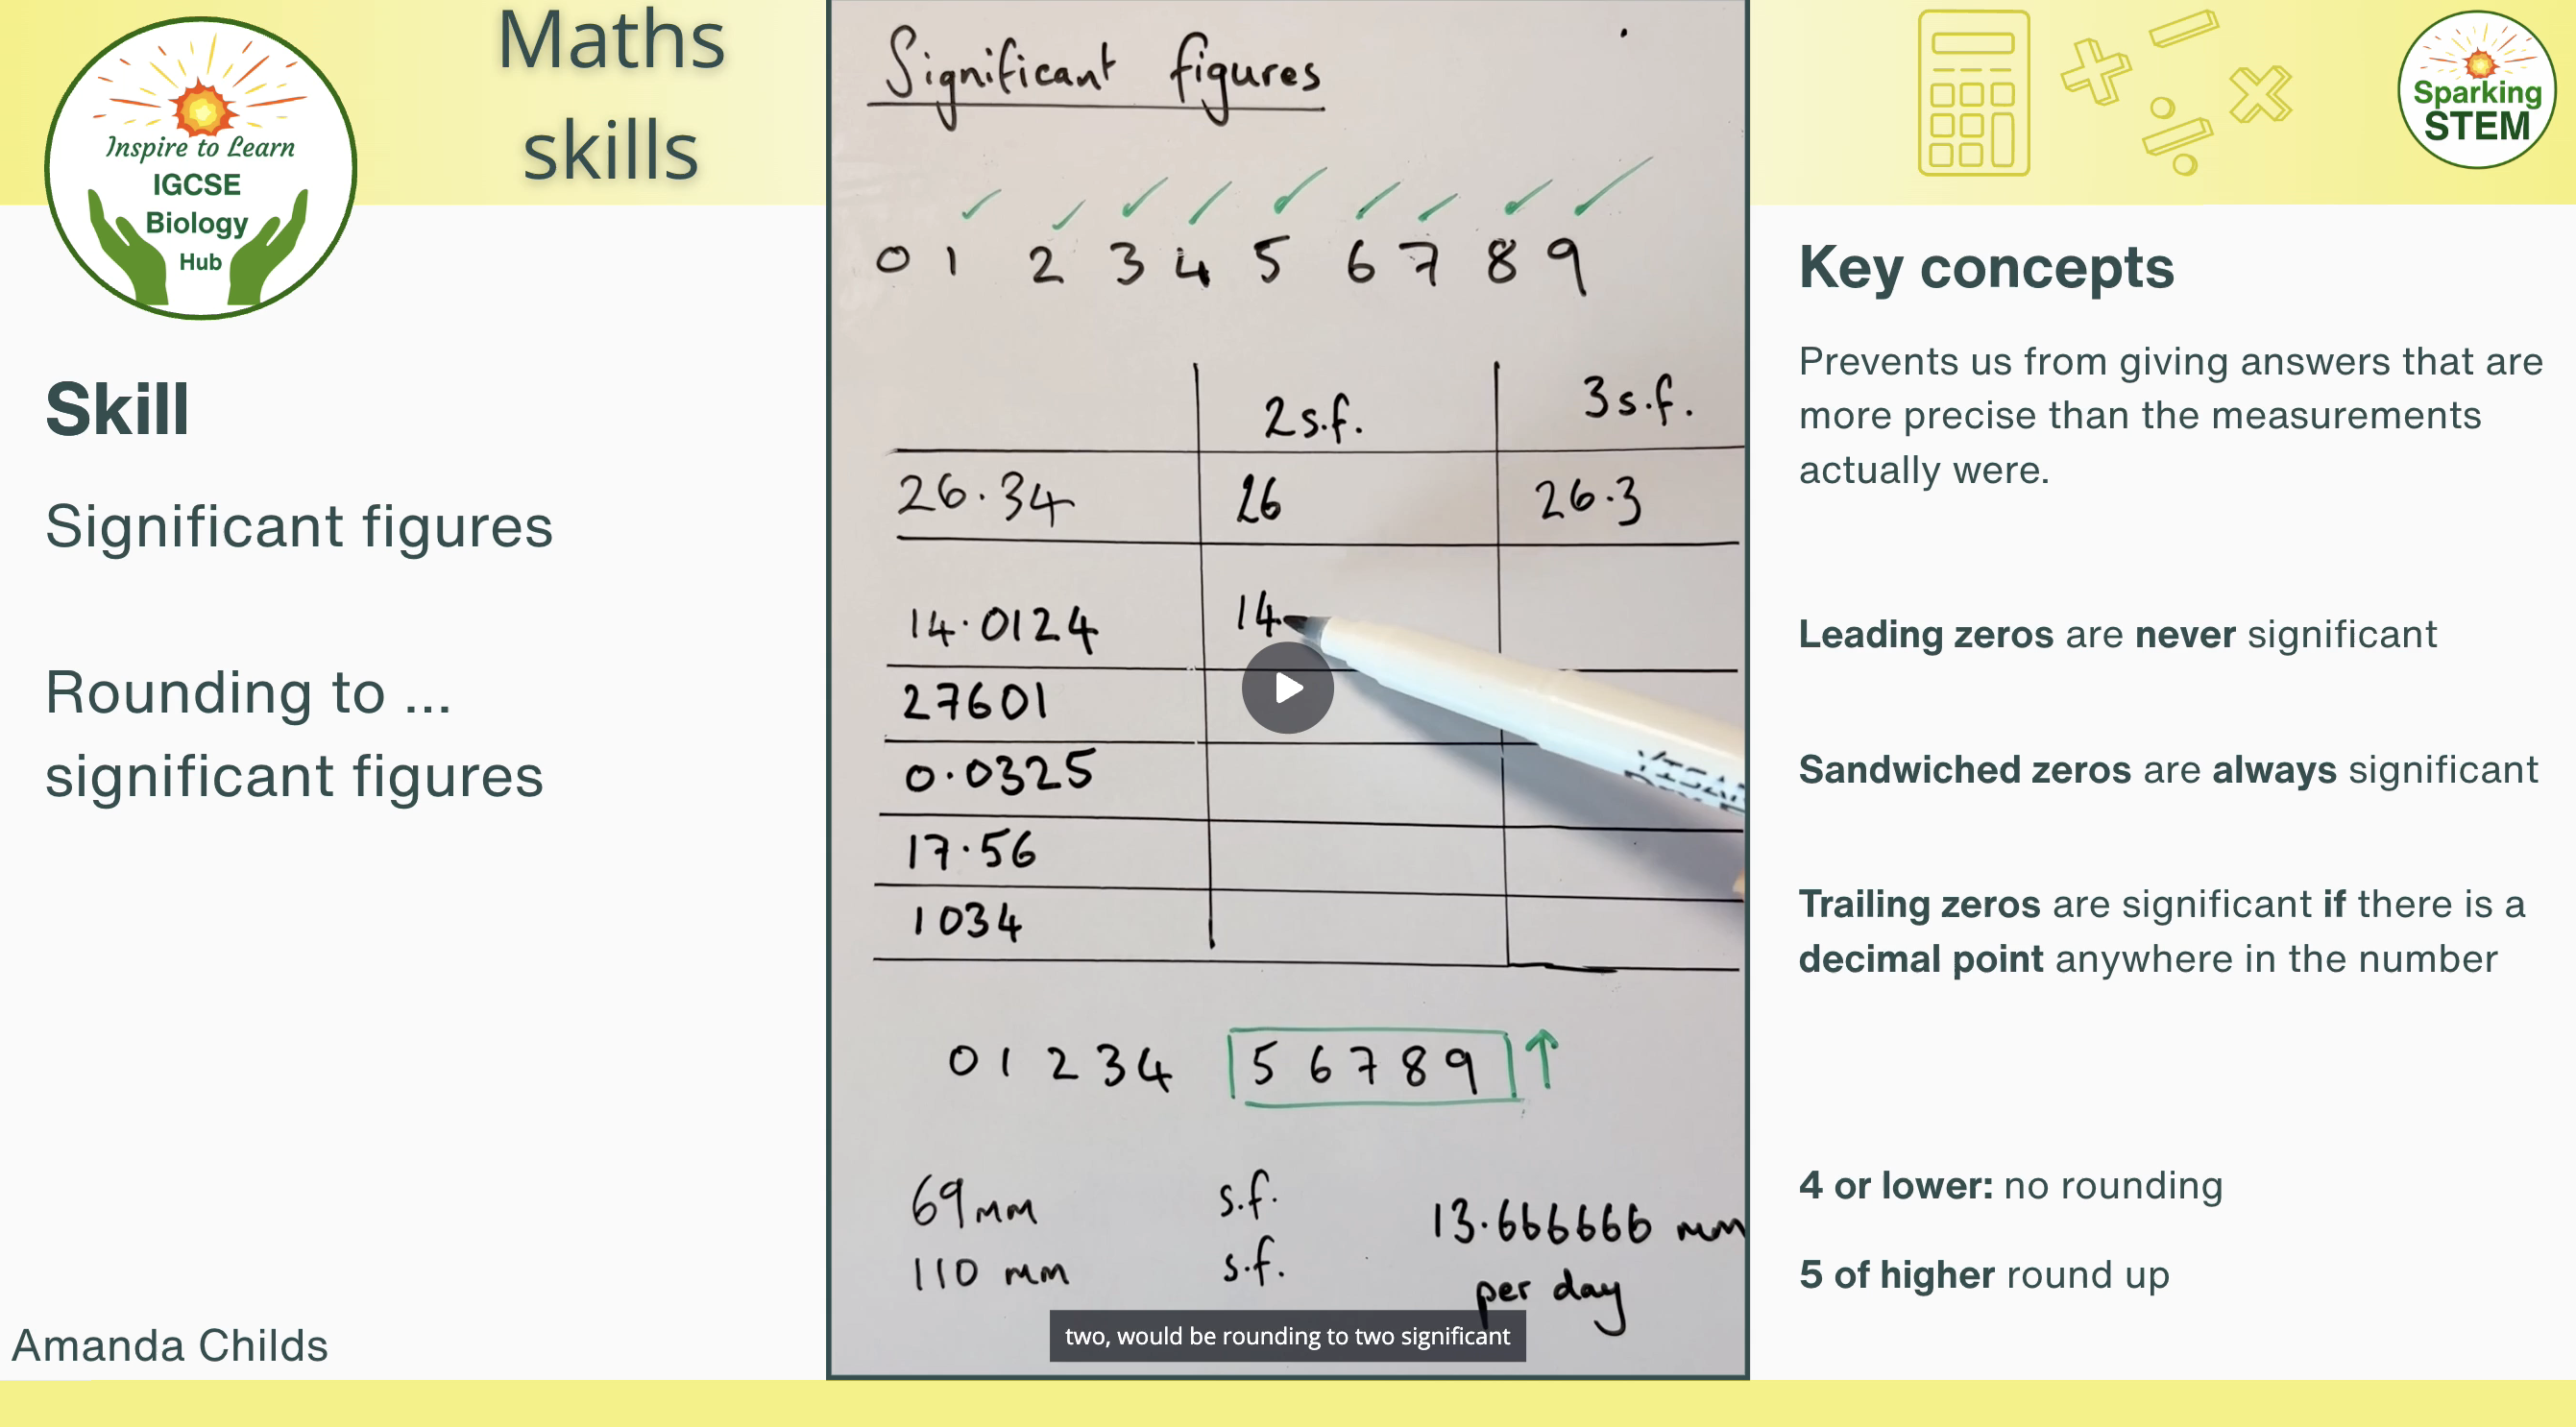 Maths
skills
Inspire to Learn
IGCSE
Biology
Hub
Skill
Significant figures
Rounding to ...
significant figures
Amanda Childs
Significant figures
0 1 2 3 4 5 6 7 8 9
2s.f. 3s.f.
26.34 26 26.3
14.0124 14
27601
0.0325
17.56
1034
0 1 2 3 4 5 6 7 8 9
69mm s.f. 13.666666 mm
110 mm s.f. per day
two, would be rounding to two significant
Sparking
STEM
Key concepts
Prevents us from giving answers that are
more precise than the measurements
actually were.
Leading zeros are never significant
Sandwiched zeros are always significant
Trailing zeros are significant if there is a
decimal point anywhere in the number
4 or lower: no rounding
5 of higher round up